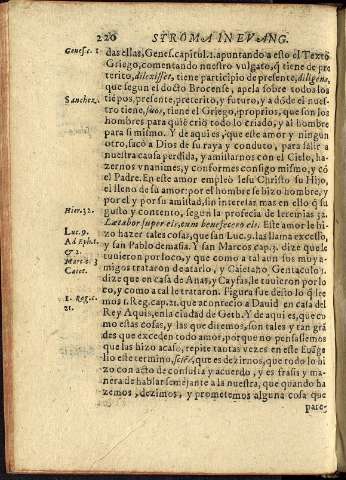 220 STROMA IN EVANG.
Genes.c. 1
das ellas, Genes. capitul. 1. apuntando a esto el Texto
Griego, comentando nuestro vulgato, q̃ tiene de pre
terito, dilexisset, tiene participio de presente, diligens,
que segun el docto Brocense, apela sobre todos los
Sanchez.
tiẽpos, presente, preterito, y futuro, y a dõde el nues-
tro tiene, suos, tiene el Griego, proprios, que son los
hombres para quiẽ criò todo lo criado, y al hombre
para si mismo. Y de aqui es, que este amor y ningun
otro, sacò a Dios de su raya y conduto, para salir a
nuestra causa perdida, y amistarnos con el Cielo, ha-
zernos vnanimes, y conformes consigo mismo, y cõ
el Padre. En este amor empleò Iesu Christo su Hijo,
el lleno de su amor: por el hombre se hizo hombre, y
por el y por su amistad, sin interesas mas en ello q̃ su
Hier. 32.
gusto y consento, segun la profecia de Ieremias 32.
Lætabor super eis, cum benefecero eis. Este amor le hi-
Luc. 9.
zo hazer tales cosas, que san Luc. 9. las llama excesso,
Ad Eph. 1.
y san Pablo demasia. Y san Marcos cap. 3. dize que le
& 2.
tuuieron por loco, y que como a tal aun sus muy a-
Marc. 3
migos trataron de atarlo, y Caietano, Gentaculo 1.
Caiet.
dize que en casa de Anas, y Cayfas, le tuuieron por lo
co, y como a tal le trataron. Figura fue desto lo q̃ lee
1. Reg. c.
mos 1. Reg. cap. 21. que aconteciò a Dauid en casa del
21.
Rey Aquis, en la ciudad de Geth. Y de aqui es, que co
mo estas cosas, y las que diremos, son tales y tan grã
des que exceden todo amor, porque no pensassemos
que las hizo acaso, repite tantas vezes en este Euãge
lio este termino, sciẽs, que es dezirnos, que todo lo hi
zo con acto de consulta y acuerdo, y es frasis y ma-
nera de hablar semejante a la nuestra, que quando ha
zemos, dezimos, y prometemos alguna cosa que
pare-